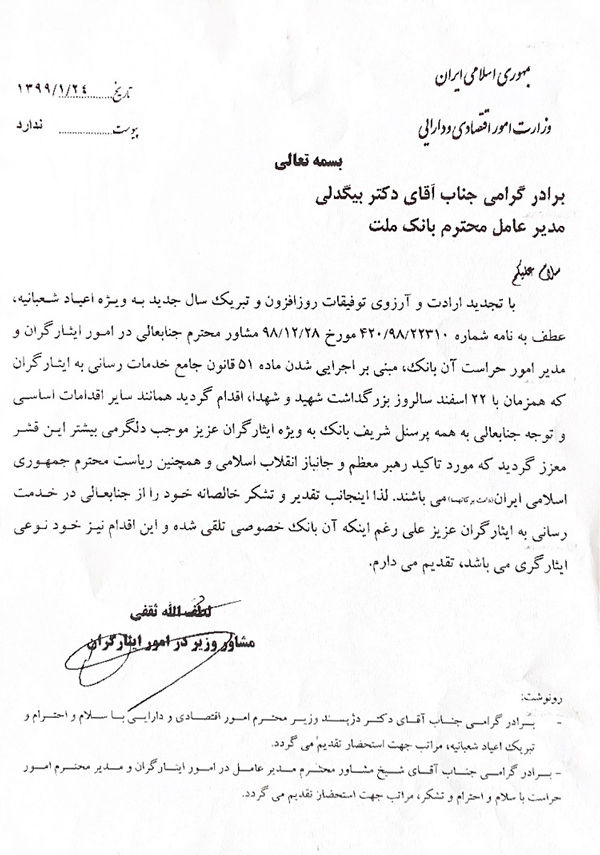 جمهوری اسلامی ایران
وزارت امور اقتصادی و دارایی
تاریخ ۱۳۹۹/۱/۲۴
پیوست ندارد
بسمه تعالی
برادر گرامی جناب آقای دکتر بیگدلی
مدیر عامل محترم بانک ملت
سلام علیکم
با تجدید ارادت و آرزوی توفیقات روزافزون و تبریک سال جدید به ویژه اعیاد شعبانیه،
عطف به نامه شماره ۴۲۰/۹۸/۲۲۳۱۰ مورخ ۹۸/۱۲/۲۸ مشاور محترم جنابعالی در امور ایثارگران و
مدیر امور حراست آن بانک، مبنی بر اجرایی شدن ماده ۵۱ قانون جامع خدمات رسانی به ایثارگران
که همزمان با ۲۲ اسفند سالروز بزرگداشت شهید و شهدا، اقدام گردید همانند سایر اقدامات اساسی
و توجه جنابعالی به همه پرسنل شریف بانک به ویژه ایثارگران عزیز موجب دلگرمی بیشتر این قشر
معزز گردید که مورد تاکید رهبر معظم و جانباز انقلاب اسلامی و همچنین ریاست محترم جمهوری
اسلامی ایران(دامت برکاتهما) می باشند. لذا اینجانب تقدیر و تشکر خالصانه خود را از جنابعالی در خدمت
رسانی به ایثارگران عزیز علی رغم اینکه آن بانک خصوصی تلقی شده و این اقدام نیز خود نوعی
ایثارگری می باشد، تقدیم می دارم.
لطف الله ثقفی
مشاور وزیر در امور ایثارگران
رونوشت:
- برادر گرامی جناب آقای دکتر دژپسند وزیر محترم امور اقتصادی و دارایی با سلام و احترام و
تبریک اعیاد شعبانیه، مراتب جهت استحضار تقدیم می گردد.
- برادر گرامی جناب آقای شیخ مشاور محترم مدیر عامل در امور ایثارگران و مدیر محترم امور
حراست با سلام و احترام و تشکر، مراتب جهت استحضار تقدیم می گردد.